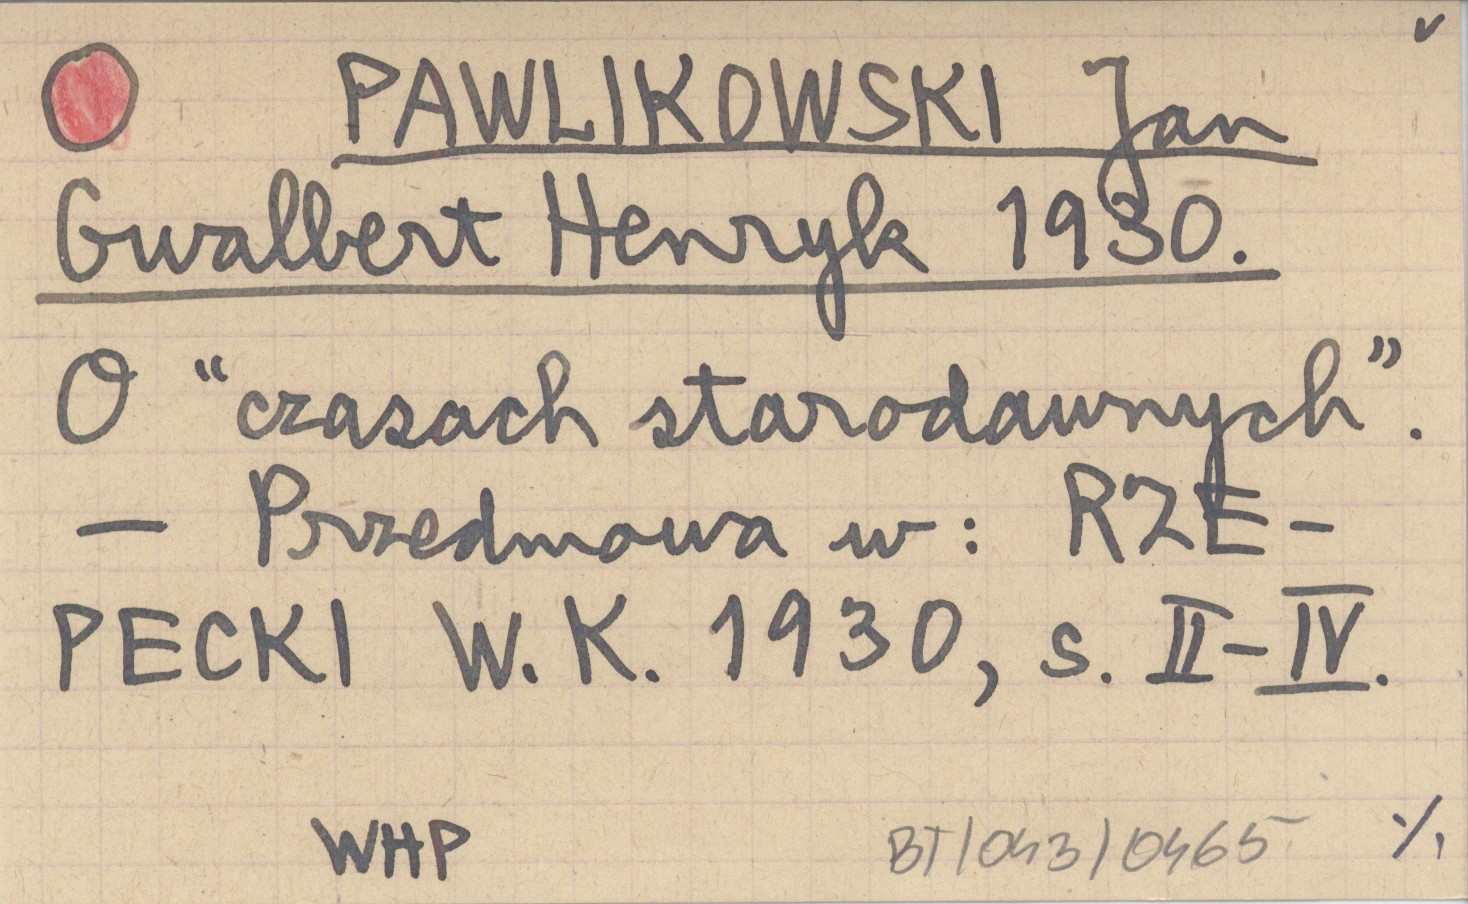 PAWLIKOWSKI Jan
Gwalbert Henryk 1930.
O “czasach starodawnych”.
— Przedmowa w: RZE-
PECKI W. K. 1930, s. II-IV.
WHP
BT/043/0465
·/.